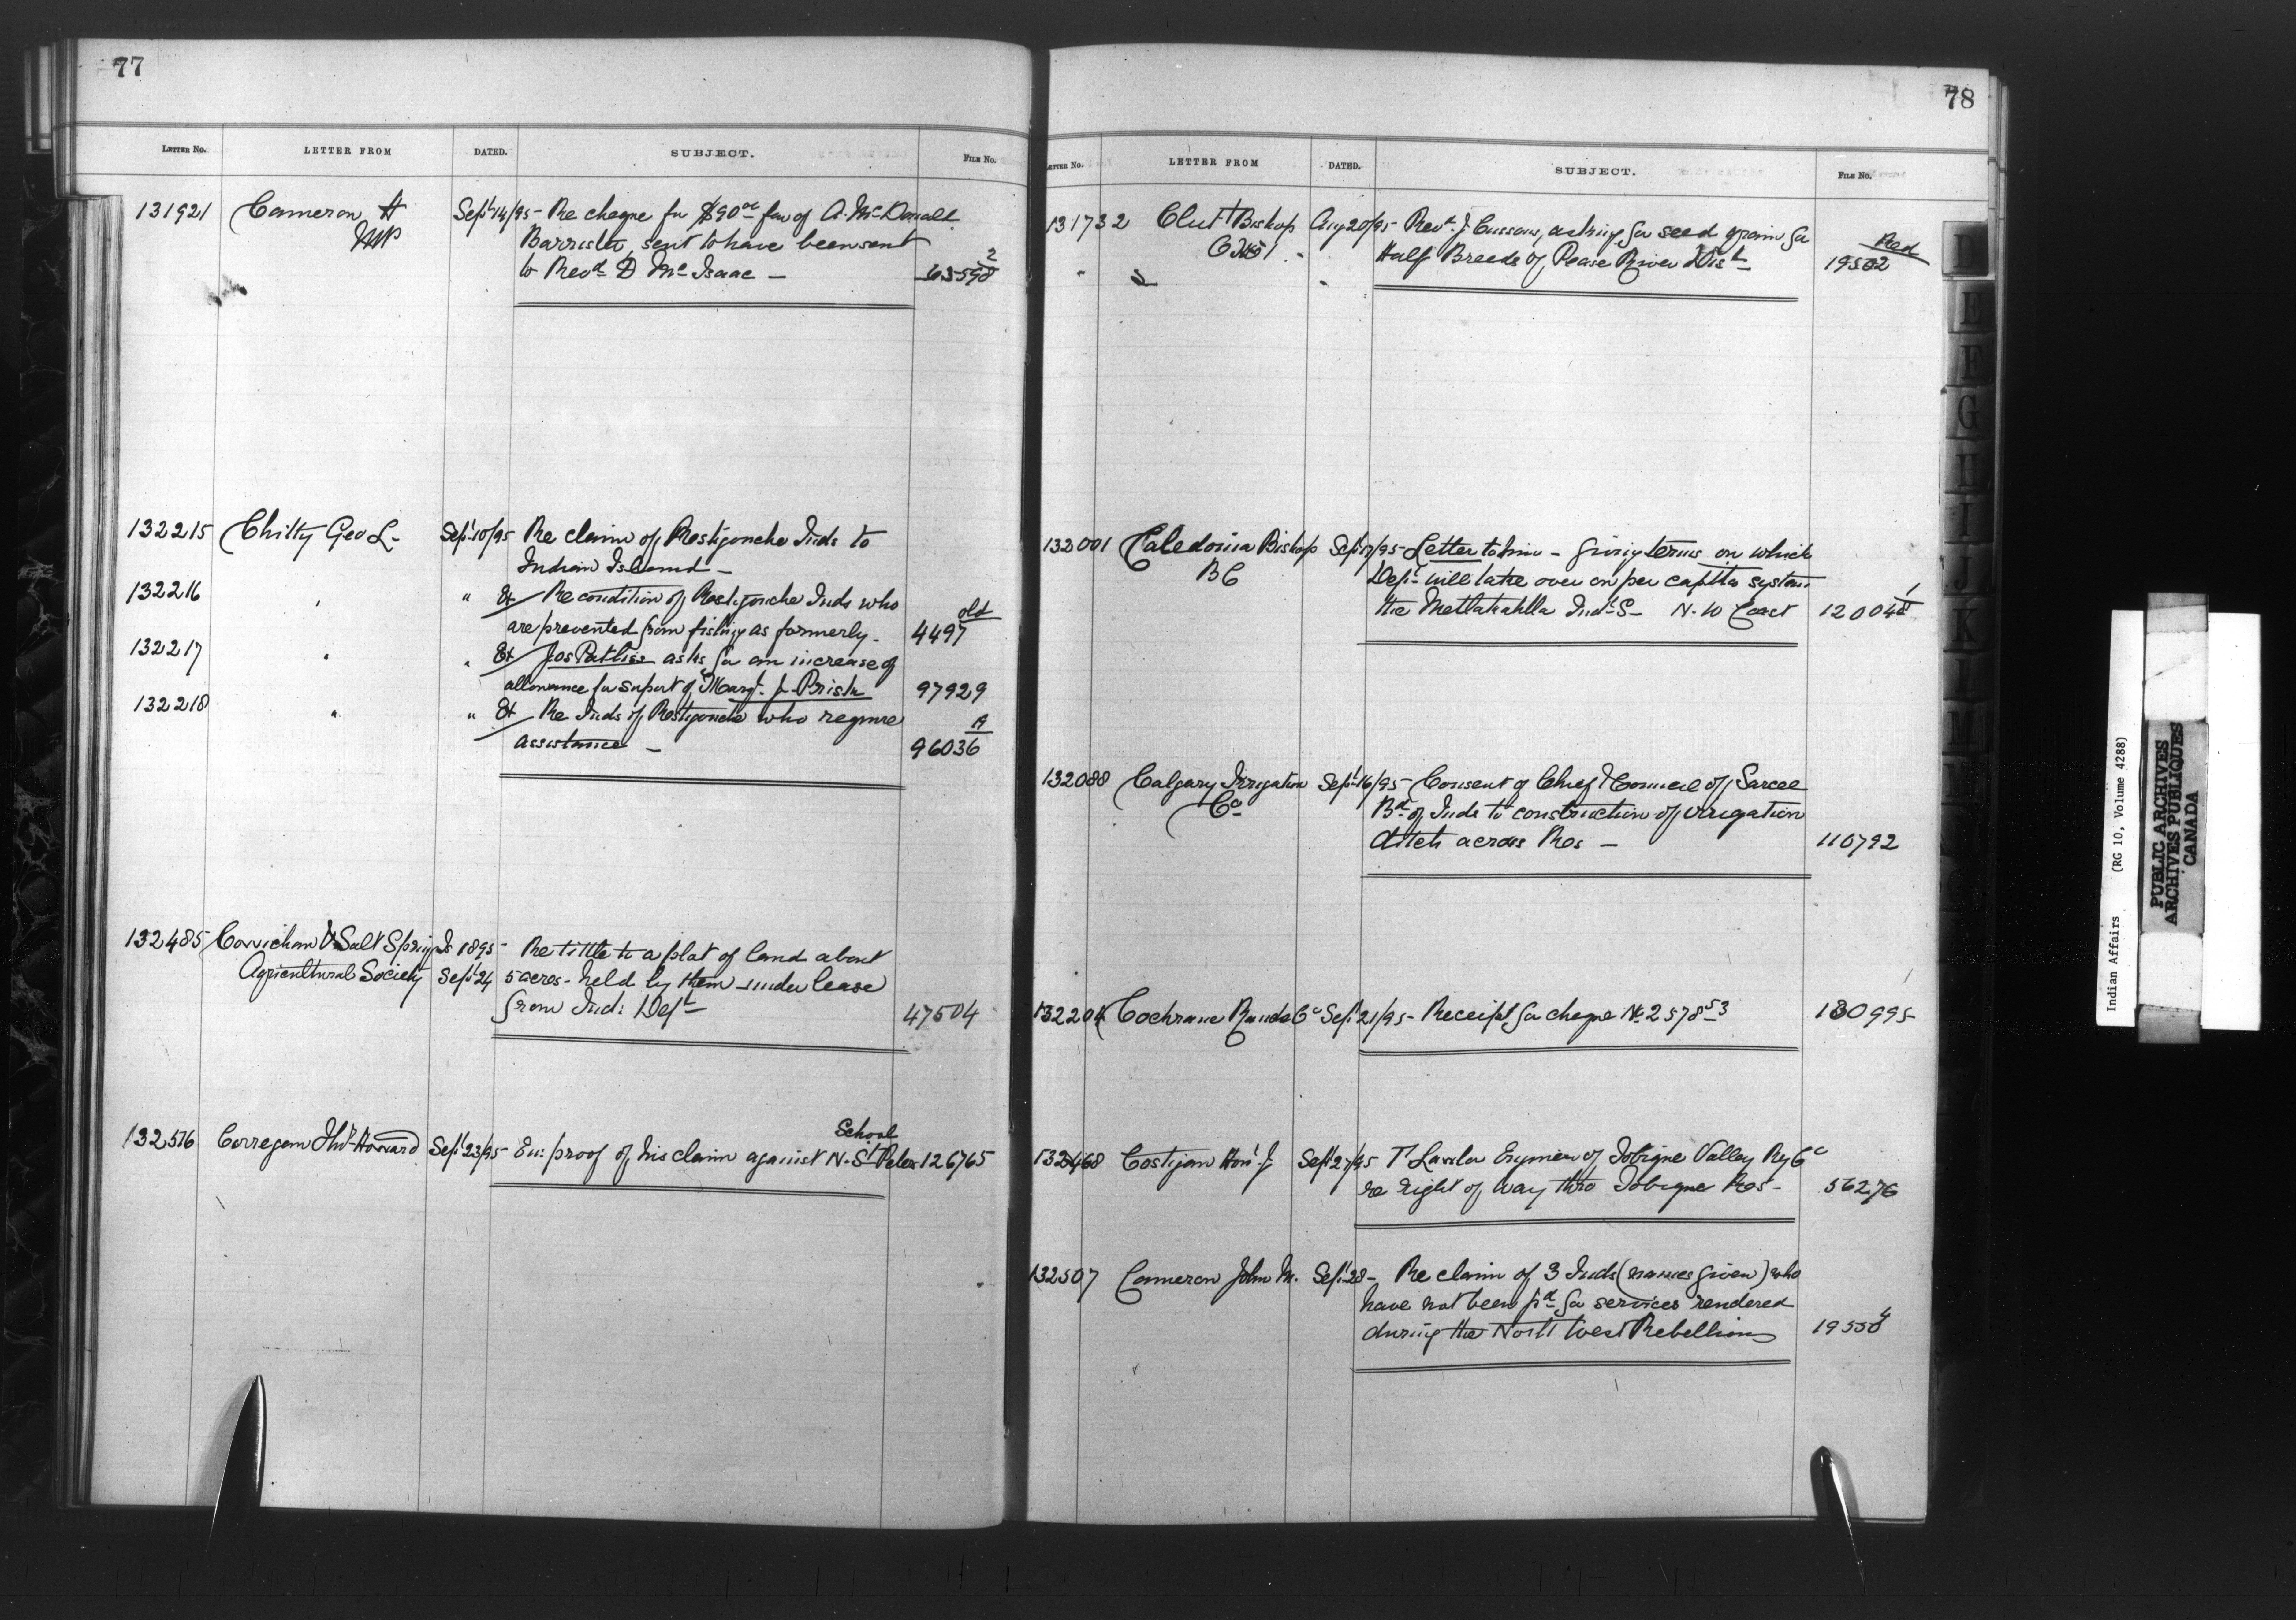 77
LETTER NO. LETTER FROM DATED. SUBJECT. FILE NO.
131921 Cameron A Sept 14/95 - Re cheque for $90 00 fav of A. McDonald
MP Barrister, sent to have been sent
to Revd D McIsaac - 63559 2
132215 Chitty Geo L - Sept 10/95 Re claim of Restigouche Inds to
Indian Island -
132216 " " Re condition of Restigouche Inds who old
are prevented from fishing as formerly - 4497
132217 " " Jos asks for an increase of
allowance for suport of Margt. J. 97929
132218 " " Re Inds of Restigouche who require A
assistance - 96036
132485 Cowichan & Salt Spring Is 1895 - Re tittle to a plat of land about
Agricultural Society Sept 24 5 acres - held by them under lease
from Ind: Dept 47504
School
132576 Corregan Howard Sept 23/95 - En: proof of his claim against N. St Peter 126765
78
LETTER NO. LETTER FROM DATED. SUBJECT. FILE NO.
131732 Clut Bishop Aug 20/95 - Revd. J. asking for seed grain for Red
" " " Half Breeds of Peace River Dist 19502
132001 Caledonia Bishop Sept 95 - Letter to him - giving terms on which
BC Dept will take over on per capita system 1
the Metlakahtla Ind. S - N. W Coast 12004
132088 Calgary Irrigation Sept 16/95 - Consent of Chief & Council of Sarcee
Co Bd of Inds to construction of irrigation
ditch across Res - 110792
132204 Cochrane Ranche Co Sept 21/95 - Receipt for cheque No 2578 53 130995
132468 Costigan Hon J Sept 27/95 T Lawlor Engineer of Tobique Valley Ry Co
re right of way thro Tobique Res - 56276
132507 Cameron John M. Sept 28 - Re claim of 3 Inds (names given) who
have not been pd for services rendered 4
during the North West Rebellion 19550
E
F
G
H
I
J
K
L
M
Indian Affairs (RG 10, Volume 4288)
PUBLIC ARCHIVES
ARCHIVES PUBLIQUES
CANADA